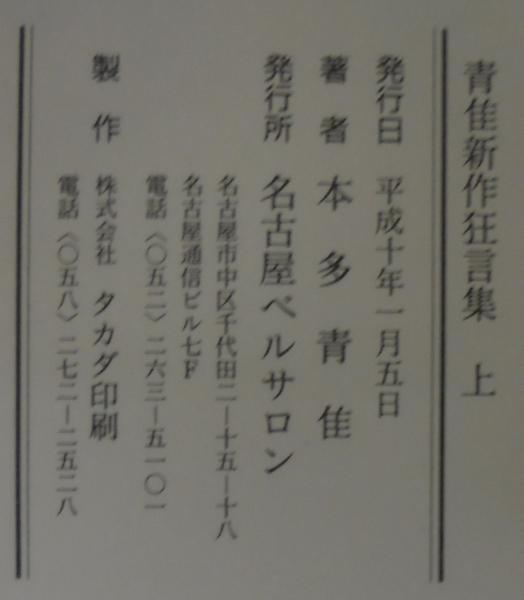 青佳新作狂言集　上
発行日　平成十年一月五日
著者　本多青佳
発行所　名古屋ベルサロン
名古屋市中区千代田二―十五―十八
名古屋通信ビル七F
電話〈〇五二〉二六三―五一〇一
製作　株式会社　タカダ印刷
電話〈〇五八〉二七二―二五二八